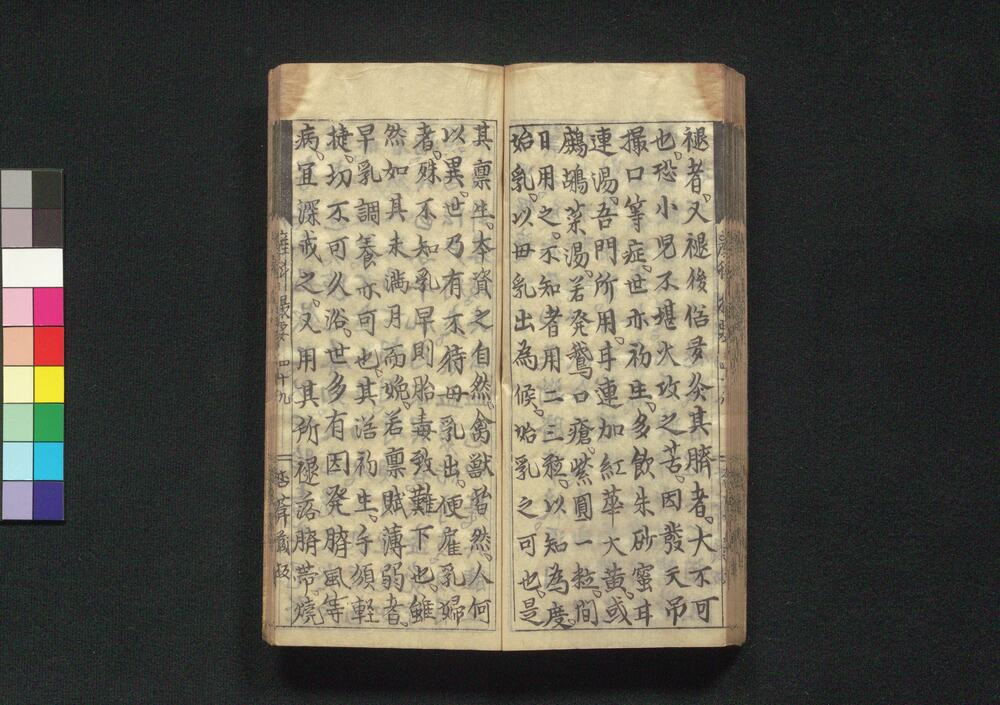 褪者。又褪後俗多灸其臍者。大不可
也。恐小兒不堪火攻之苦。因發天吊
撮口等症。世亦初生。多飲朱砂蜜甘
連湯。吾門所用。甘連加紅華大黄。或
鷓鴣菜湯。若発鵞口瘡。紫圓一粒。間
日用之。不知者用二三粒。以知為度。
始乳。以母乳出為候。始乳之可也。是
其禀生。本資之自然。禽獣皆然。人何
以異。世乃有不待母乳出。便雇乳婦
者。殊不知乳早則胎毒致難下也。雖
然如其未満月而娩。若禀賦薄弱者。
早乳調養亦可也。其浴初生。手須軽
捷。切不可久浴。世多有因発臍風等
病。宜深戒之。又用其所褪落臍帯。燒
四十九
藏板